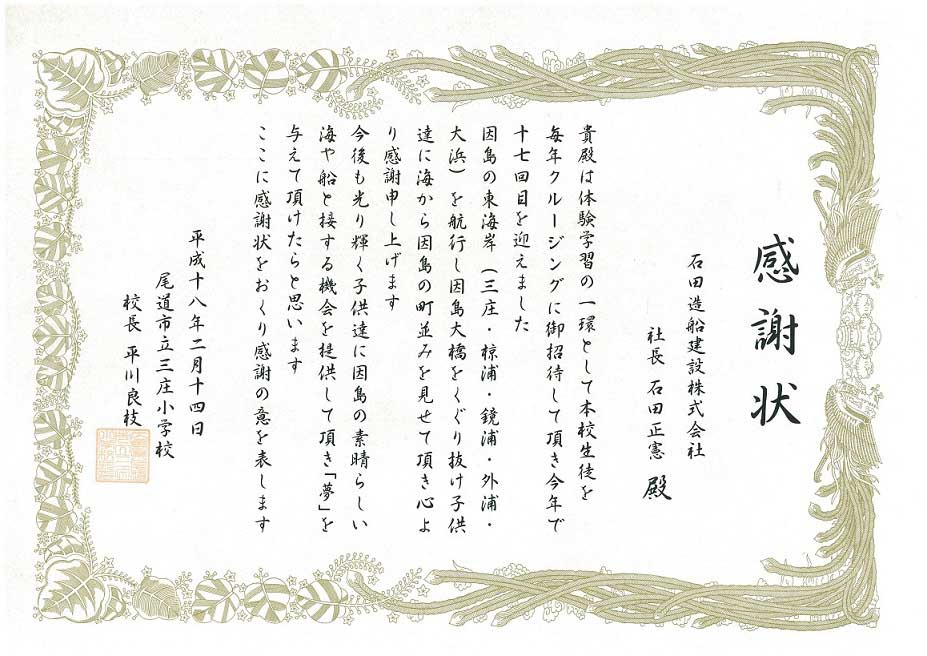 感謝状
石田造船建設株式会社
社長 石田正憲 殿
貴殿は体験学習の一環として本校生徒を
毎年クルージングに御招待して頂き今年で
十七回目を迎えました
因島の東海岸（三庄・椋浦・鏡浦・外浦・
大浜）を航行し因島大橋をくぐり抜け子供
達に海から因島の町並みを見せて頂き心よ
り感謝申し上げます
今後も光り輝く子供達に因島の素晴らしい
海や船と接する機会を提供して頂き「夢」を
与えて頂けたらと思います
ここに感謝状をおくり感謝の意を表します
平成十八年二月十四日
尾道市立三庄小学校
校長 平川良枝